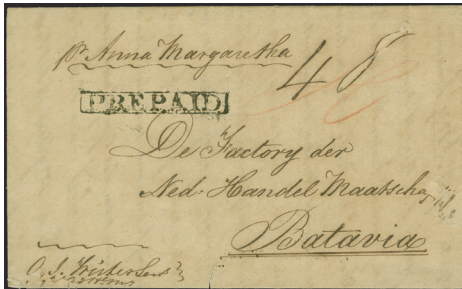 pr Anna Margaretha
48
PREPAID
De Factory der
Ned. Handel Maatschappij
Batavia